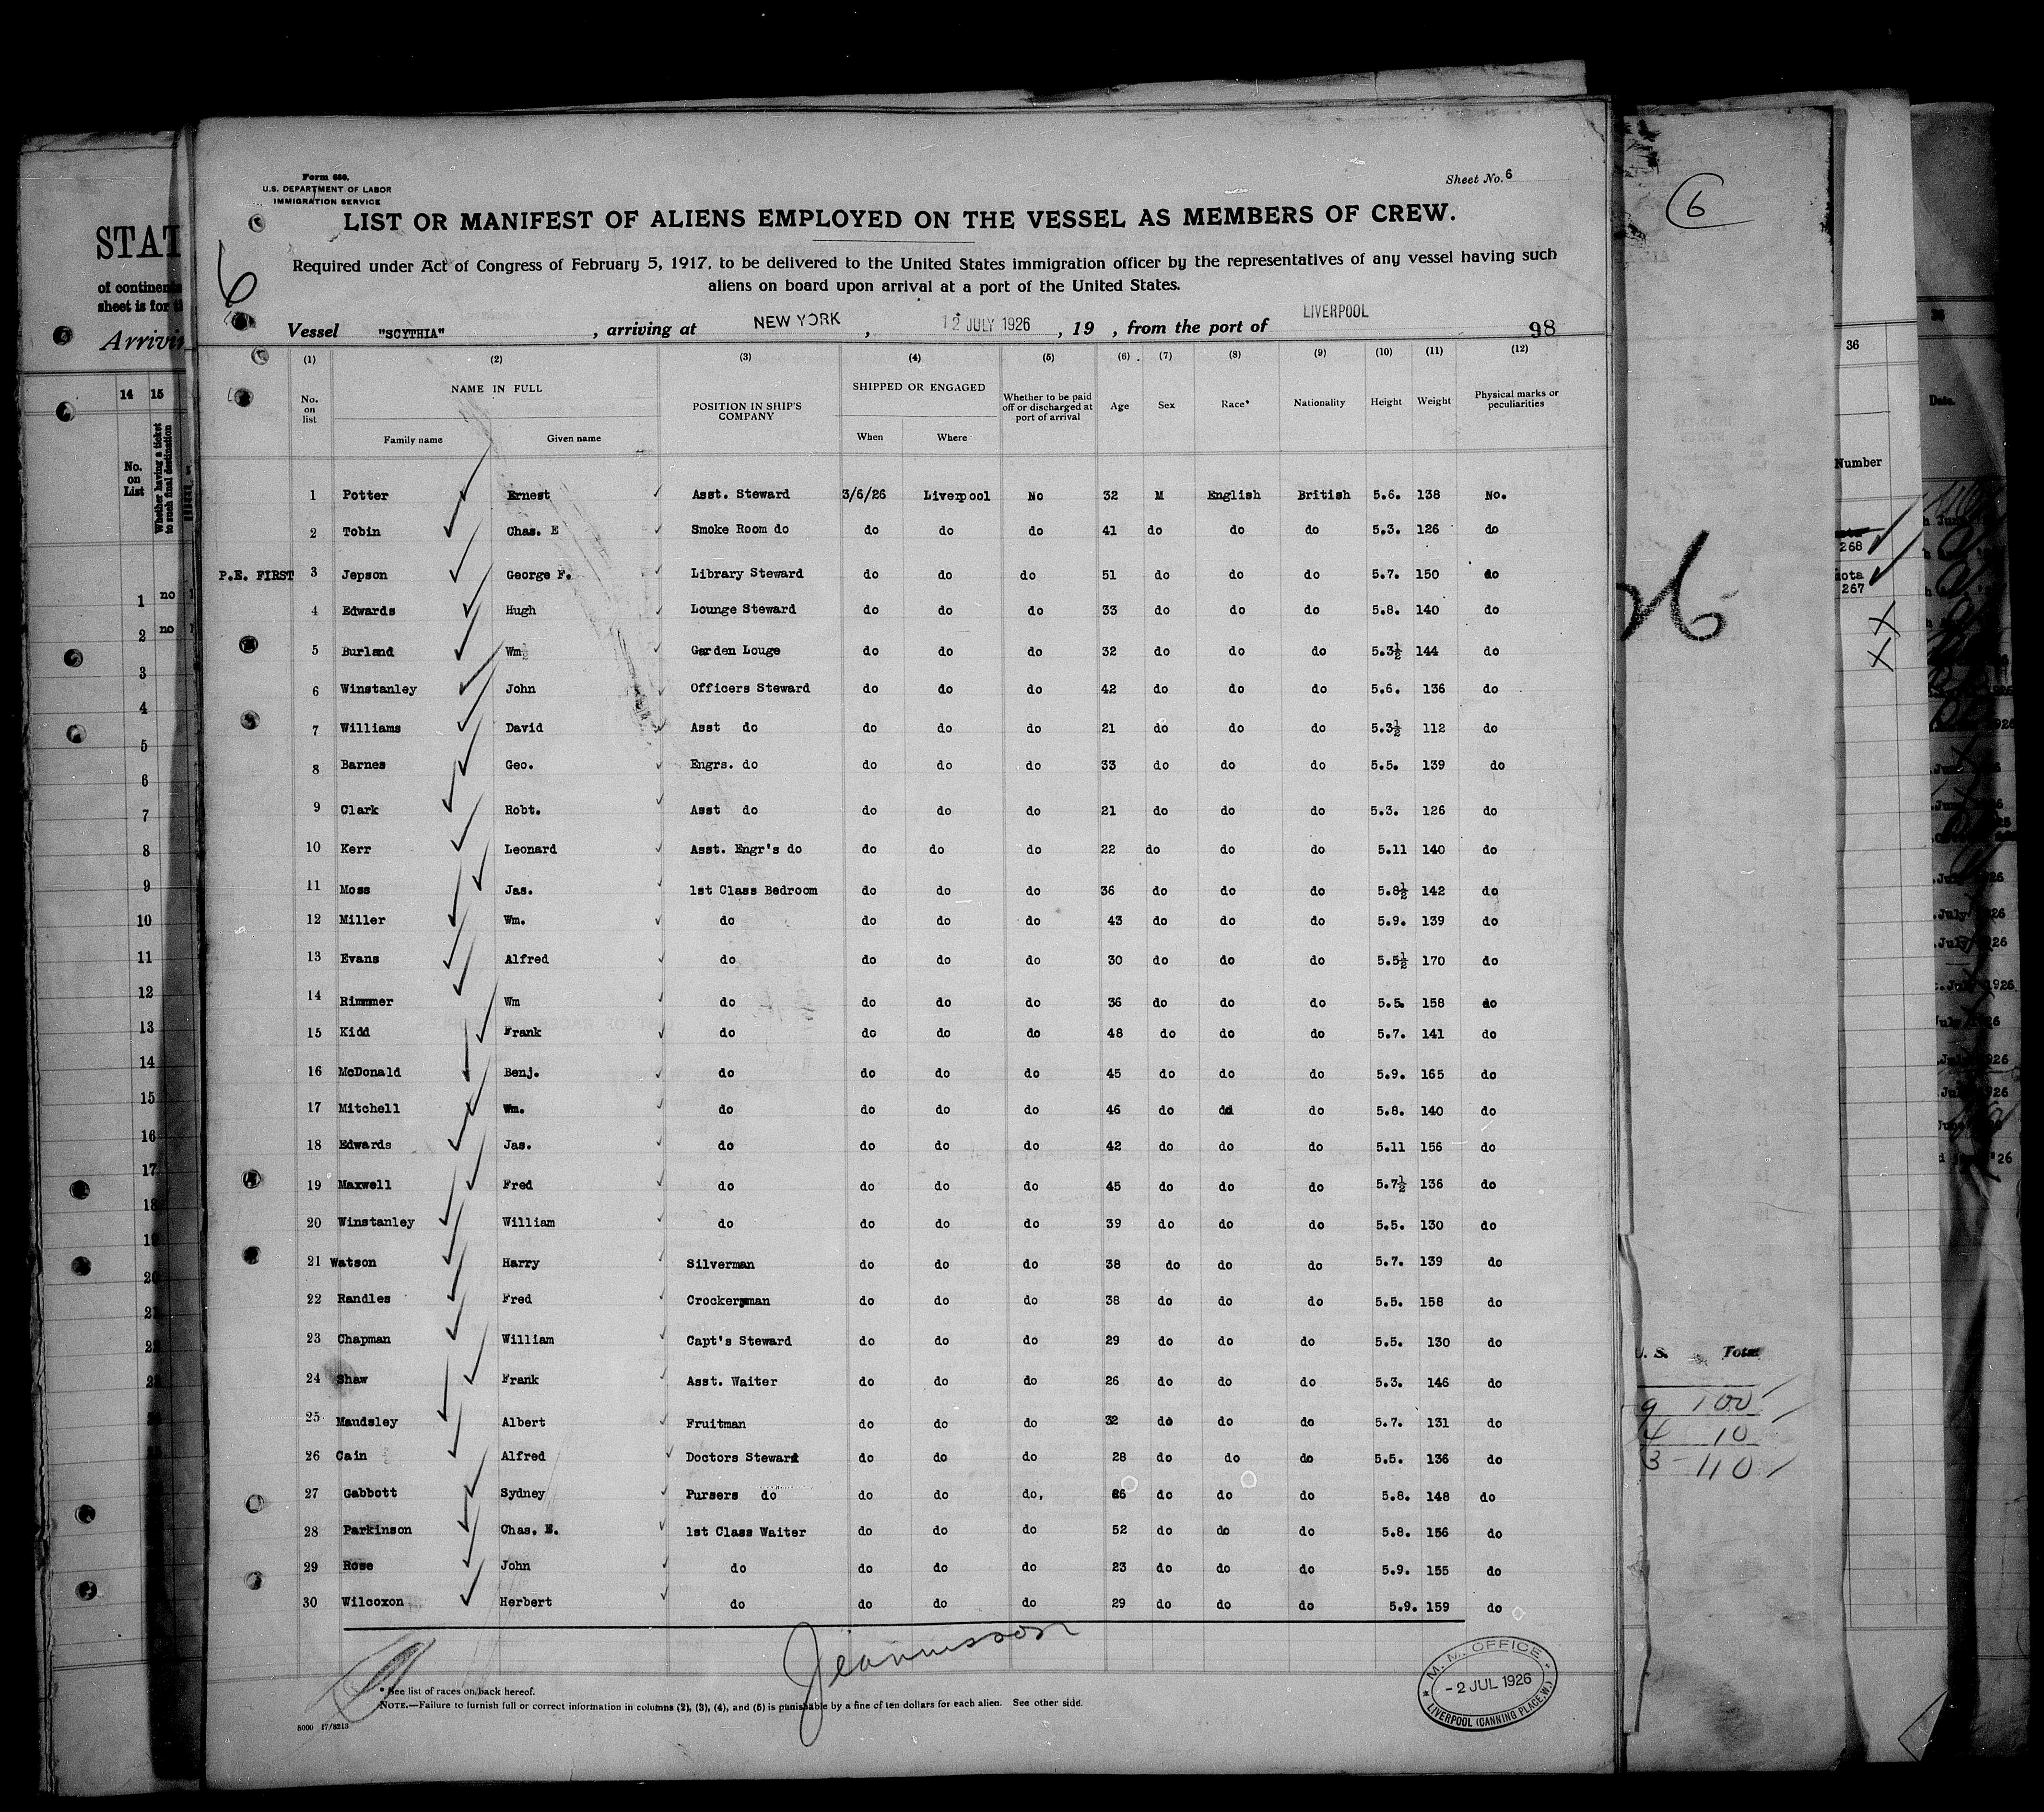 Form 680.
U.S. DEPARTMENT OF LABOR
IMMIGRATION SERVICE
Sheet No. 6
LIST OR MANIFEST OF ALIENS EMPLOYED ON THE VESSEL AS MEMBERS OF CREW.
Required under Act of Congress of February 5, 1917, to be delivered to the United States immigration officer by the representatives of any vessel having such
aliens on board upon arrival at a port of the United States.
Vessel "SCYTHIA", arriving at NEW YORK, 12 JULY 1926, 19 , from the port of LIVERPOOL 98
(1) (2) (3) (4) (5) (6) (7) (8) (9) (10) (11) (12)
No. on list NAME IN FULL Family name Given name POSITION IN SHIP'S COMPANY SHIPPED OR ENGAGED When Where Whether to be paid off or discharged at port of arrival Age Sex Race* Nationality Height Weight Physical marks or peculiarities
1 Potter Ernest Asst. Steward 3/6/26 Liverpool No 32 M English British 5.6. 138 No.
2 Tobin Chas. E Smoke Room do do do do 41 do do do 5.3. 126 do
P.E. FIRST 3 Jepson George F. Library Steward do do do 51 do do do 5.7. 150 do
4 Edwards Hugh Lounge Steward do do do 33 do do do 5.8. 140 do
5 Burland Wm. Garden Louge do do do 32 do do do 5.3½ 144 do
6 Winstanley John Officers Steward do do do 42 do do do 5.6. 136 do
7 Williams David Asst do do do do 21 do do do 5.3½ 112 do
8 Barnes Geo. Engrs. do do do do 33 do do do 5.5. 139 do
9 Clark Robt. Asst do do do do 21 do do do 5.3. 126 do
10 Kerr Leonard Asst. Engr's do do do do 22 do do do 5.11 140 do
11 Moss Jas. 1st Class Bedroom do do do 36 do do do 5.8½ 142 do
12 Miller Wm. do do do do 43 do do do 5.9. 139 do
13 Evans Alfred do do do do 30 do do do 5.5½ 170 do
14 Rimmmer Wm do do do do 36 do do do 5.5. 158 do
15 Kidd Frank do do do do 48 do do do 5.7. 141 do
16 McDonald Benj. do do do do 45 do do do 5.9. 165 do
17 Mitchell Wm. do do do do 46 do do do 5.8. 140 do
18 Edwards Jas. do do do do 42 do do do 5.11 156 do
19 Maxwell Fred do do do do 45 do do do 5.7½ 136 do
20 Winstanley William do do do do 39 do do do 5.5. 130 do
21 Watson Harry Silverman do do do 38 do do do 5.7. 139 do
22 Randles Fred Crockeryman do do do 38 do do do 5.5. 158 do
23 Chapman William Capt's Steward do do do 29 do do do 5.5. 130 do
24 Shaw Frank Asst. Waiter do do do 26 do do do 5.3. 146 do
25 Maudsley Albert Fruitman do do do 32 do do do 5.7. 131 do
26 Cain Alfred Doctors Steward do do do 28 do do do 5.5. 136 do
27 Gabbott Sydney Pursers do do do do, 26 do do do 5.8. 148 do
28 Parkinson Chas. E. 1st Class Waiter do do do 52 do do do 5.8. 156 do
29 Rose John do do do do 23 do do do 5.9. 155 do
30 Wilcoxon Herbert do do do do 29 do do do 5.9. 159 do
* See list of races on back hereof.
NOTE.—Failure to furnish full or correct information in columns (2), (3), (4), and (5) is punishable by a fine of ten dollars for each alien. See other side.
5000 17/8213
M. M. OFFICE
- 2 JUL 1926
LIVERPOOL (CANNING PLACE.W.)
STAT
of continen
sheet is for
Arrivin
14 15
No. on List
Whether having a ticket to such final destination
1 no
2 no
3
4
5
6
7
8
9
10
11
12
13
14
15
16
17
18
19
20
21
22
6
26
U. S. Total
9 100
4 10
3 110
36
Number
268
267
Date.